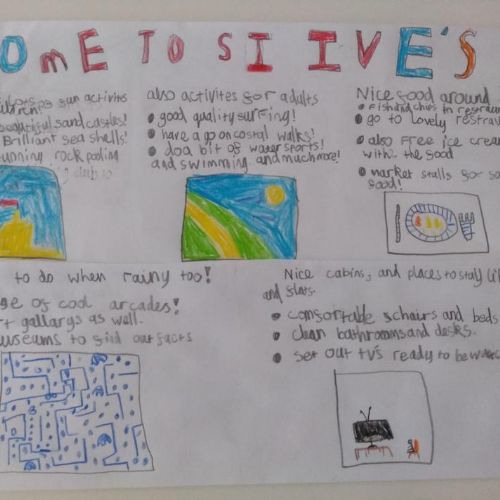 OmE TO SI IIVE'S
activites
beautiful sand castles!
Brilliant sea shells!
unning rock pooling
also activites for adults
good quality surfing!
have a go on costal walks!
do a bit of water sports!
and swimming and much more!
Nice food around
fish and chies to restraura
go to Lovely restrau
also Free ice crea
with the food
market stalls for so
food!
to do when rainy too!
ge of cool arcades!
t gallarys as well.
useums to find out facts
Nice cabins, and places to stay li
and flats.
comfortable schairs and beds
clean bathrooms and desks.
set out tvs ready to be watc